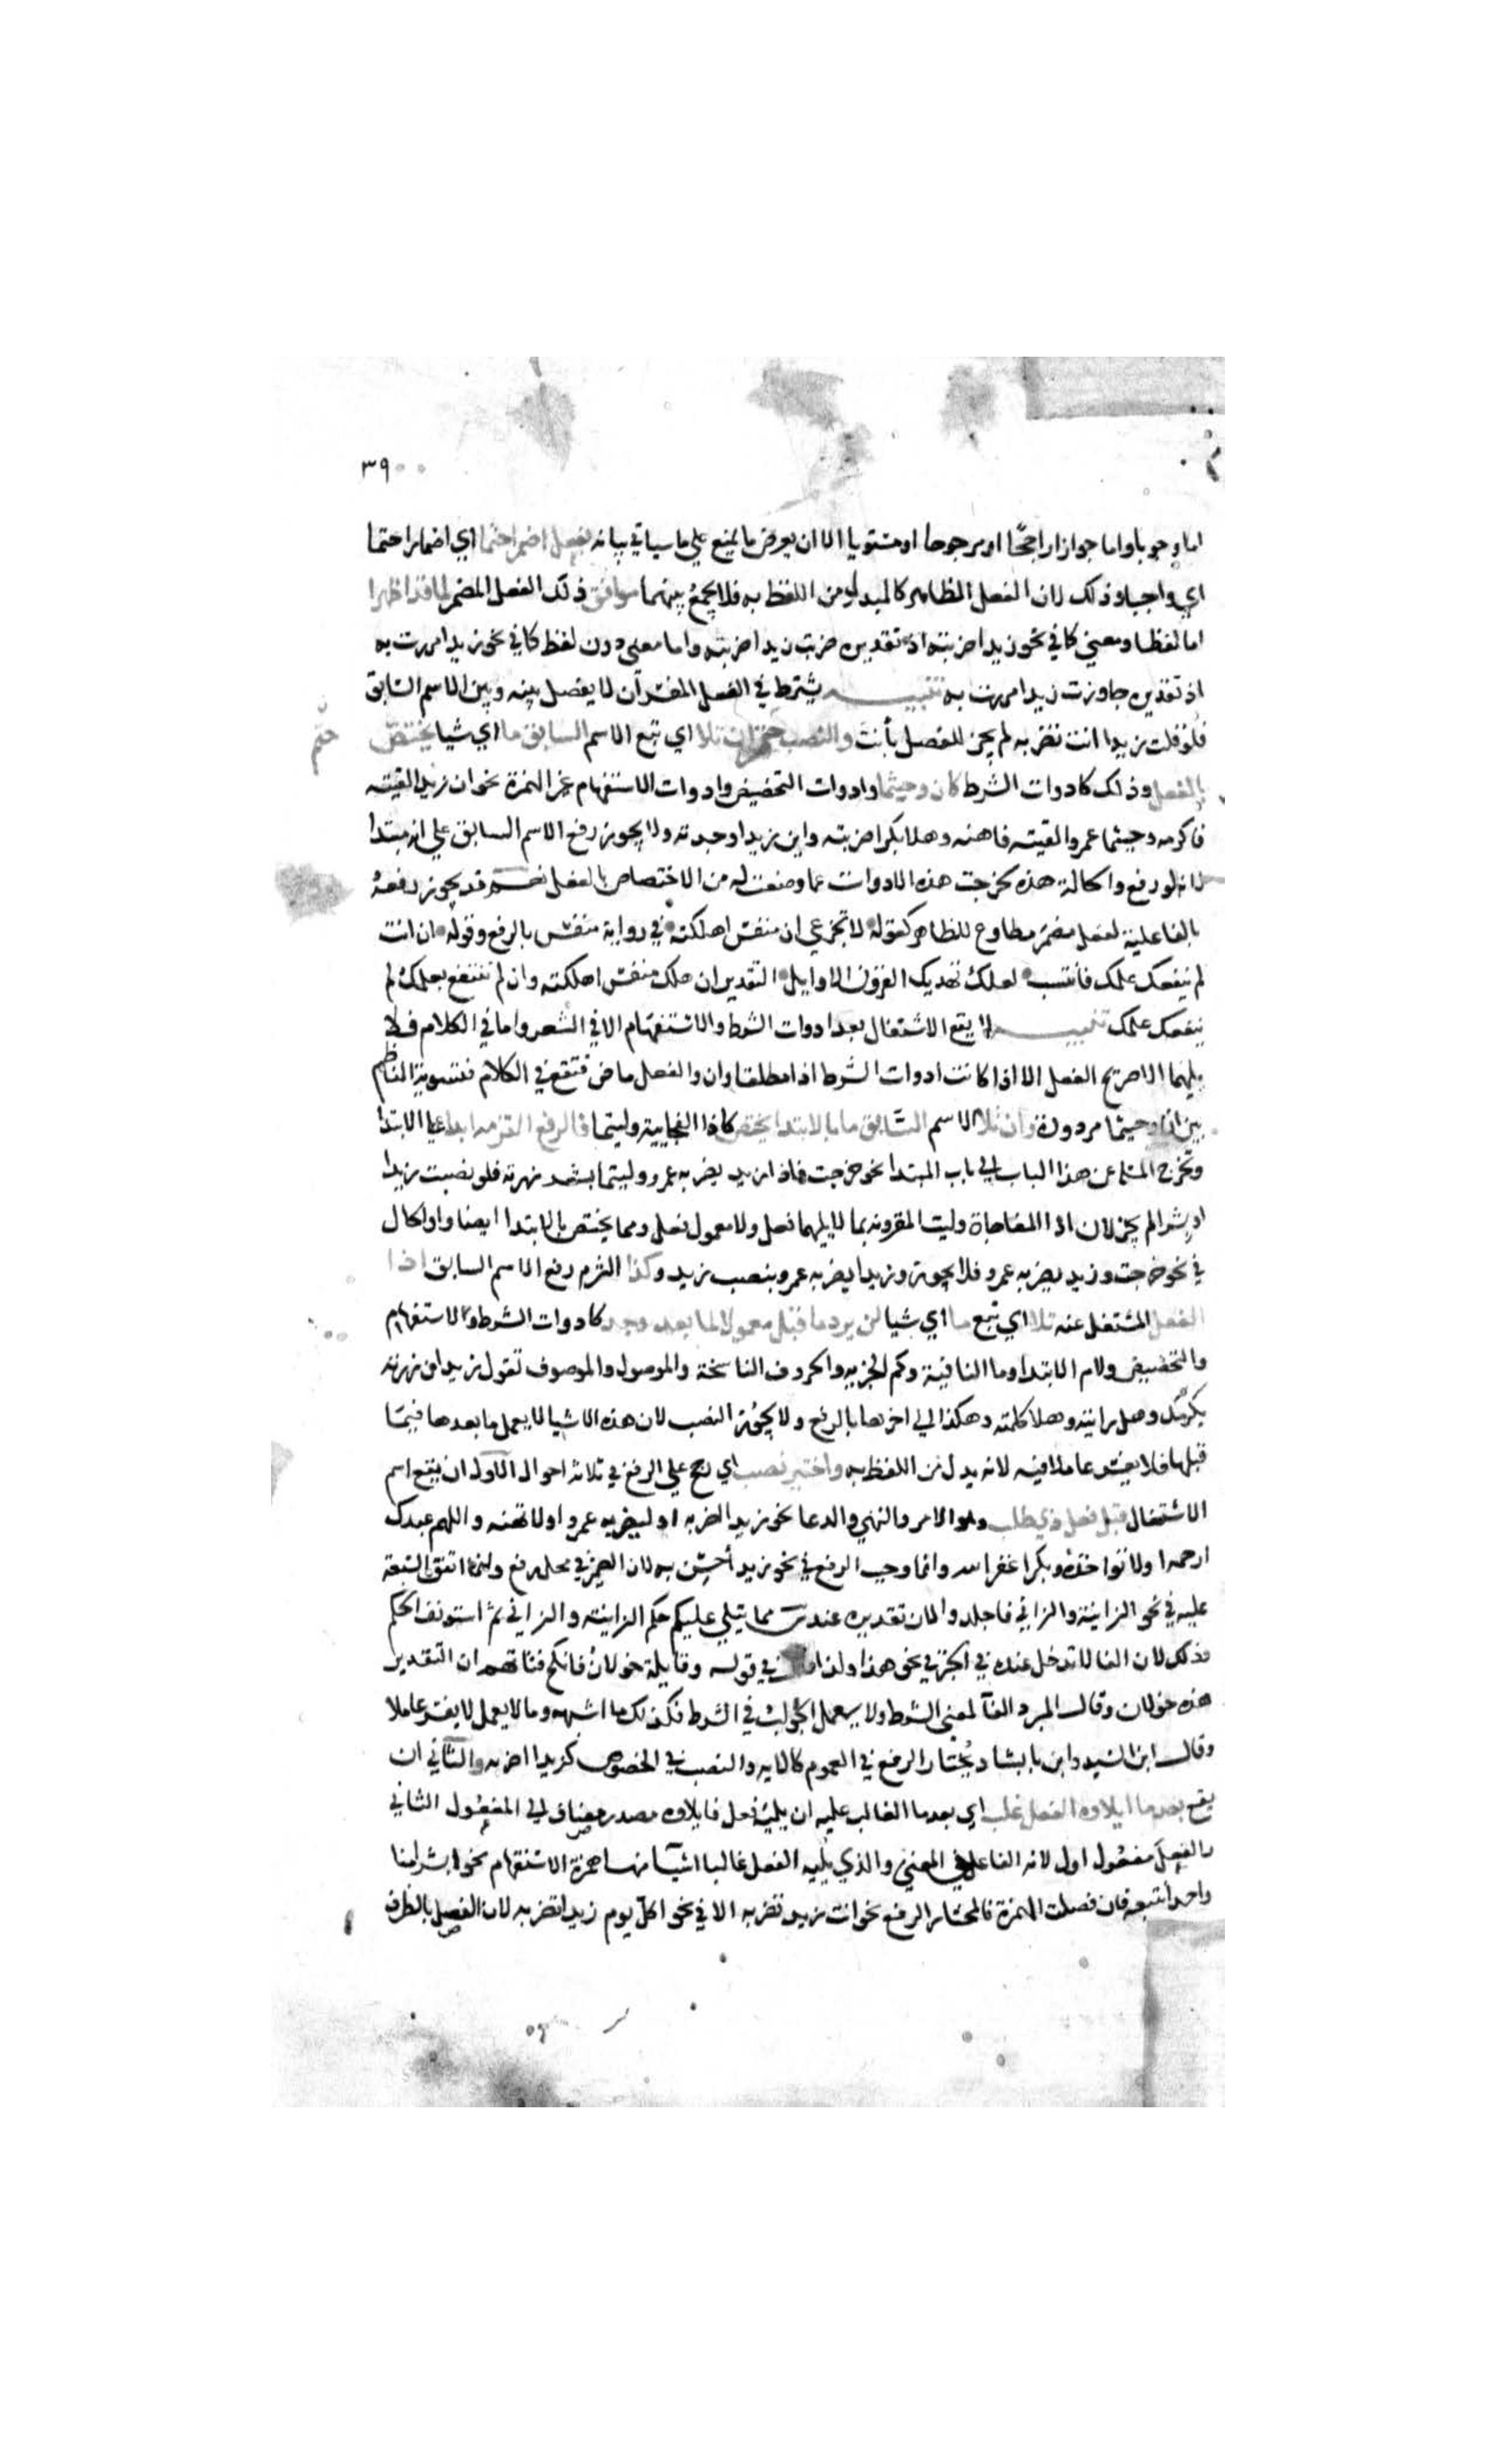 ٣٩
اما وجوبا واما جوازا راجحًا او مرجوحا او مستويا الا ان يعرض ما يمنع علي ما سياتي بيانه بفعل اضمرا حتما اي اضمارا حتما
اي واجبا وذلك لان الفعل الظاهر كالبدل من اللفظ به فلا يجمع بينهما موافق ذلك الفعل المضمر لما قد اظهرا
اما لفظا ومعني كما في نحو زيدا ضربته اذ تقديره ضربت زيدا ضربته واما معني دون لفظ كما في نحو زيدا مررت به
اذ تقديره جاوزت زيدا مررت به تنبيه يشترط في الفعل المفسر ان لا يفصل بينه وبين الاسم السابق
فلو قلت زيدا انت تضربه لم يجز للفصل بأنت والنصب حتم ان تلا اي تبع الاسم السابق ما اي شيا يختص
حتم
بالفعل وذلك كادوات الشرط كان وحيثما وادوات التحضيض وادوات الاستفهام غير الهمزة نحو ان زيدا لقيته
فاكرمه وحيثما عمرو القيته فاهنه وهلا بكرا ضربته واين زيدا وجدته ولا يجوز رفع الاسم السابق علي انه مبتدا
لانه لو رفع والحالة هذه لخرجت هذه الادوات عما وضعت له من الاختصاص بالفعل نعم قد يجوز رفعه
بالفاعلية لفعل مضمر مطاوع للظاهر كقوله لا تجزعي ان منفس اهلكته في رواية منفس بالرفع وقوله ان انت
لم ينفعك علمك فانتسب لعلك تهديك القرون الاوايل التقدير ان هلك منفس اهلكته وان لم تنتفع بعلمك لم
ينفعك علمك تنبيه لا يقع الاشتغال بعد ادوات الشرط والاستفهام الا في الشعر واما في الكلام فلا
يليهما الا صريح الفعل الا اذا كانت ادوات الشرط اذا مطلقا وان والفعل ماض فتقع في الكلام فتسوية الناظم
بين ان وحيثما مردودة وان تلا الاسم السابق ما بالابتدا يختص كاذا الفجايية وليتما فالرفع التزمه ابدا علي الابتدا
وتخرج المسئلة عن هذا الباب الي باب المبتدا نحو خرجت فاذا زيد يضربه عمرو وليتما بشر زرته فلو نصبت زيدا
او بشرا لم يجز لان اذا المفاجاة وليت المقرونه بما لا يليهما فعل ولا معمول فعل ومما يختص بالابتدا ايضا واو الحال
في نحو خرجت وزيد يضربه عمرو فلا يجوز وزيدا يضربه عمرو بنصب زيد وكذا التزم رفع الاسم السابق اذا
الفعل المشتغل عنه تلا اي تبع ما اي شيا لن يرد ما قبل معمولا لما بعد وجد كادوات الشرط والاستفهام
والتحضيض ولام الابتدا وما النافية وكم الخبريه والحروف الناسخة والموصول والموصوف تقول زيد ان زرته
يكرمك وهل رايته وهلا كلمته وهكذا الي اخرها بالرفع ولا يجوز النصب لان هذه الاشيا لا يعمل ما بعدها فيما
قبلها فلا يفسر عاملا فيه لانه بدل من اللفظ به واختير نصب اي رجح علي الرفع في ثلاثة احوال الاول ان يقع اسم
الاشتغال قبل فعل ذي طلب وهو الامر والنهي والدعا نحو زيدا اضربه او ليضربه عمرو او لا تهنه واللهم عبدك
ارحمه او لا تواخذه وبكرا غفر الله وانما وجب الرفع في نحو زيد أحسن به لان الضمير في محل رفع وانما اتفق السبعة
عليه في نحو الزانية والزاني فاجلدوا لان تقديره عند س مما يتلي عليكم حكم الزانيه والزاني ثم استونف الحكم
وذلك لان الفا لا تدخل عنده في الخبر في نحو هذا ولذا في قوله وقايلة خولان فانكح فتاتهم ان التقدير
هذه خولان وقال المبرد الفا لمعني الشرط ولا يعمل الجواب في الشرط فكذلك ما اشبهه وما لا يعمل لا يفسر عاملا
وقال ابن السيد وابن بابشاد يختار الرفع في العموم كالايه والنصب في الخصوص كزيدا اضربه والثاني ان
يقع بعد ما ايلاوه الفعل غلب اي بعد ما الغالب عليه ان يليه فعل فايلاوه مصدر مضاف الي المفعول الثاني
والفعل مفعول اول لانه الفاعل في المعني والذي يليه الفعل غالبا اشيا منها همزة الاستفهام نحو ابشرا منا
واحدا نتبعه فان فصلت الهمزة فالمختار الرفع نحو انت زيد تضربه الا في نحو اكل يوم زيدا تضربه لان الفصل بالظرف